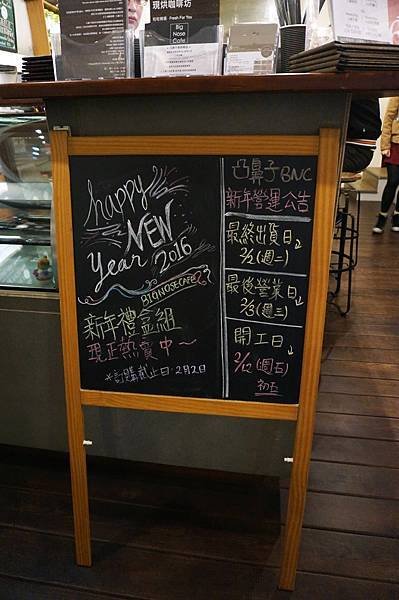 現烘咖啡坊
Fresh For You
Big
Nose
Cafe
happy
NEW
year 2016
BIGNOSECAFE
新年禮盒組
現正熱賣中~
*訂購截止日:2月2日
凸鼻子BNC
新年營運公告
最終出貨日↓
2/1(週一)
最後營業日↓
2/3(週三)
開工日↓
2/12(週五)
初五